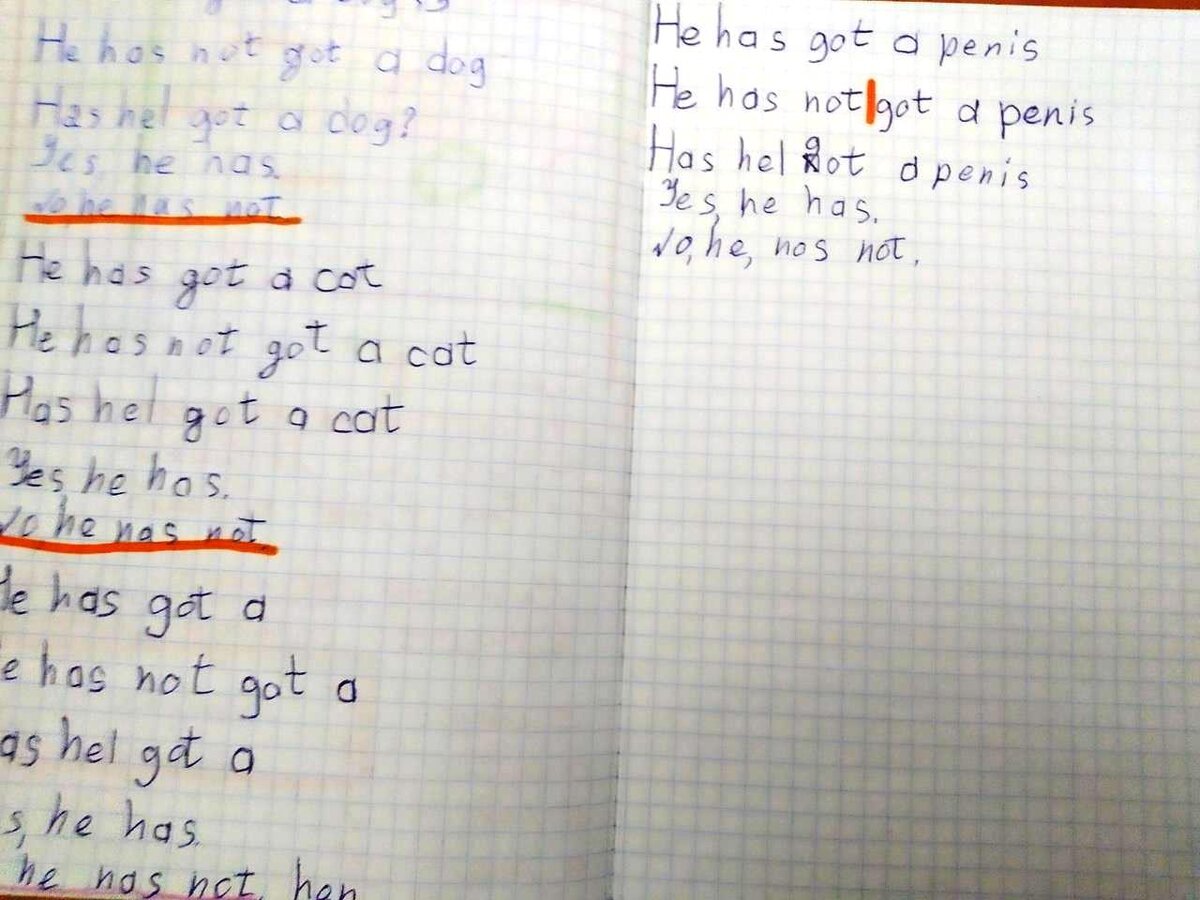 He has not got a dog
Has hel got a dog?
Yes, he has.
No, he has not.
He has got a cat
He has not got a cat
Has hel got a cat
Yes, he has.
No, he nas not.
He has got a
e has not got a
as hel got a
s, he has.
he nas not, hen
He has got a penis
He has not got a penis
Has hel got a penis
Yes, he has.
No, he, nos not.